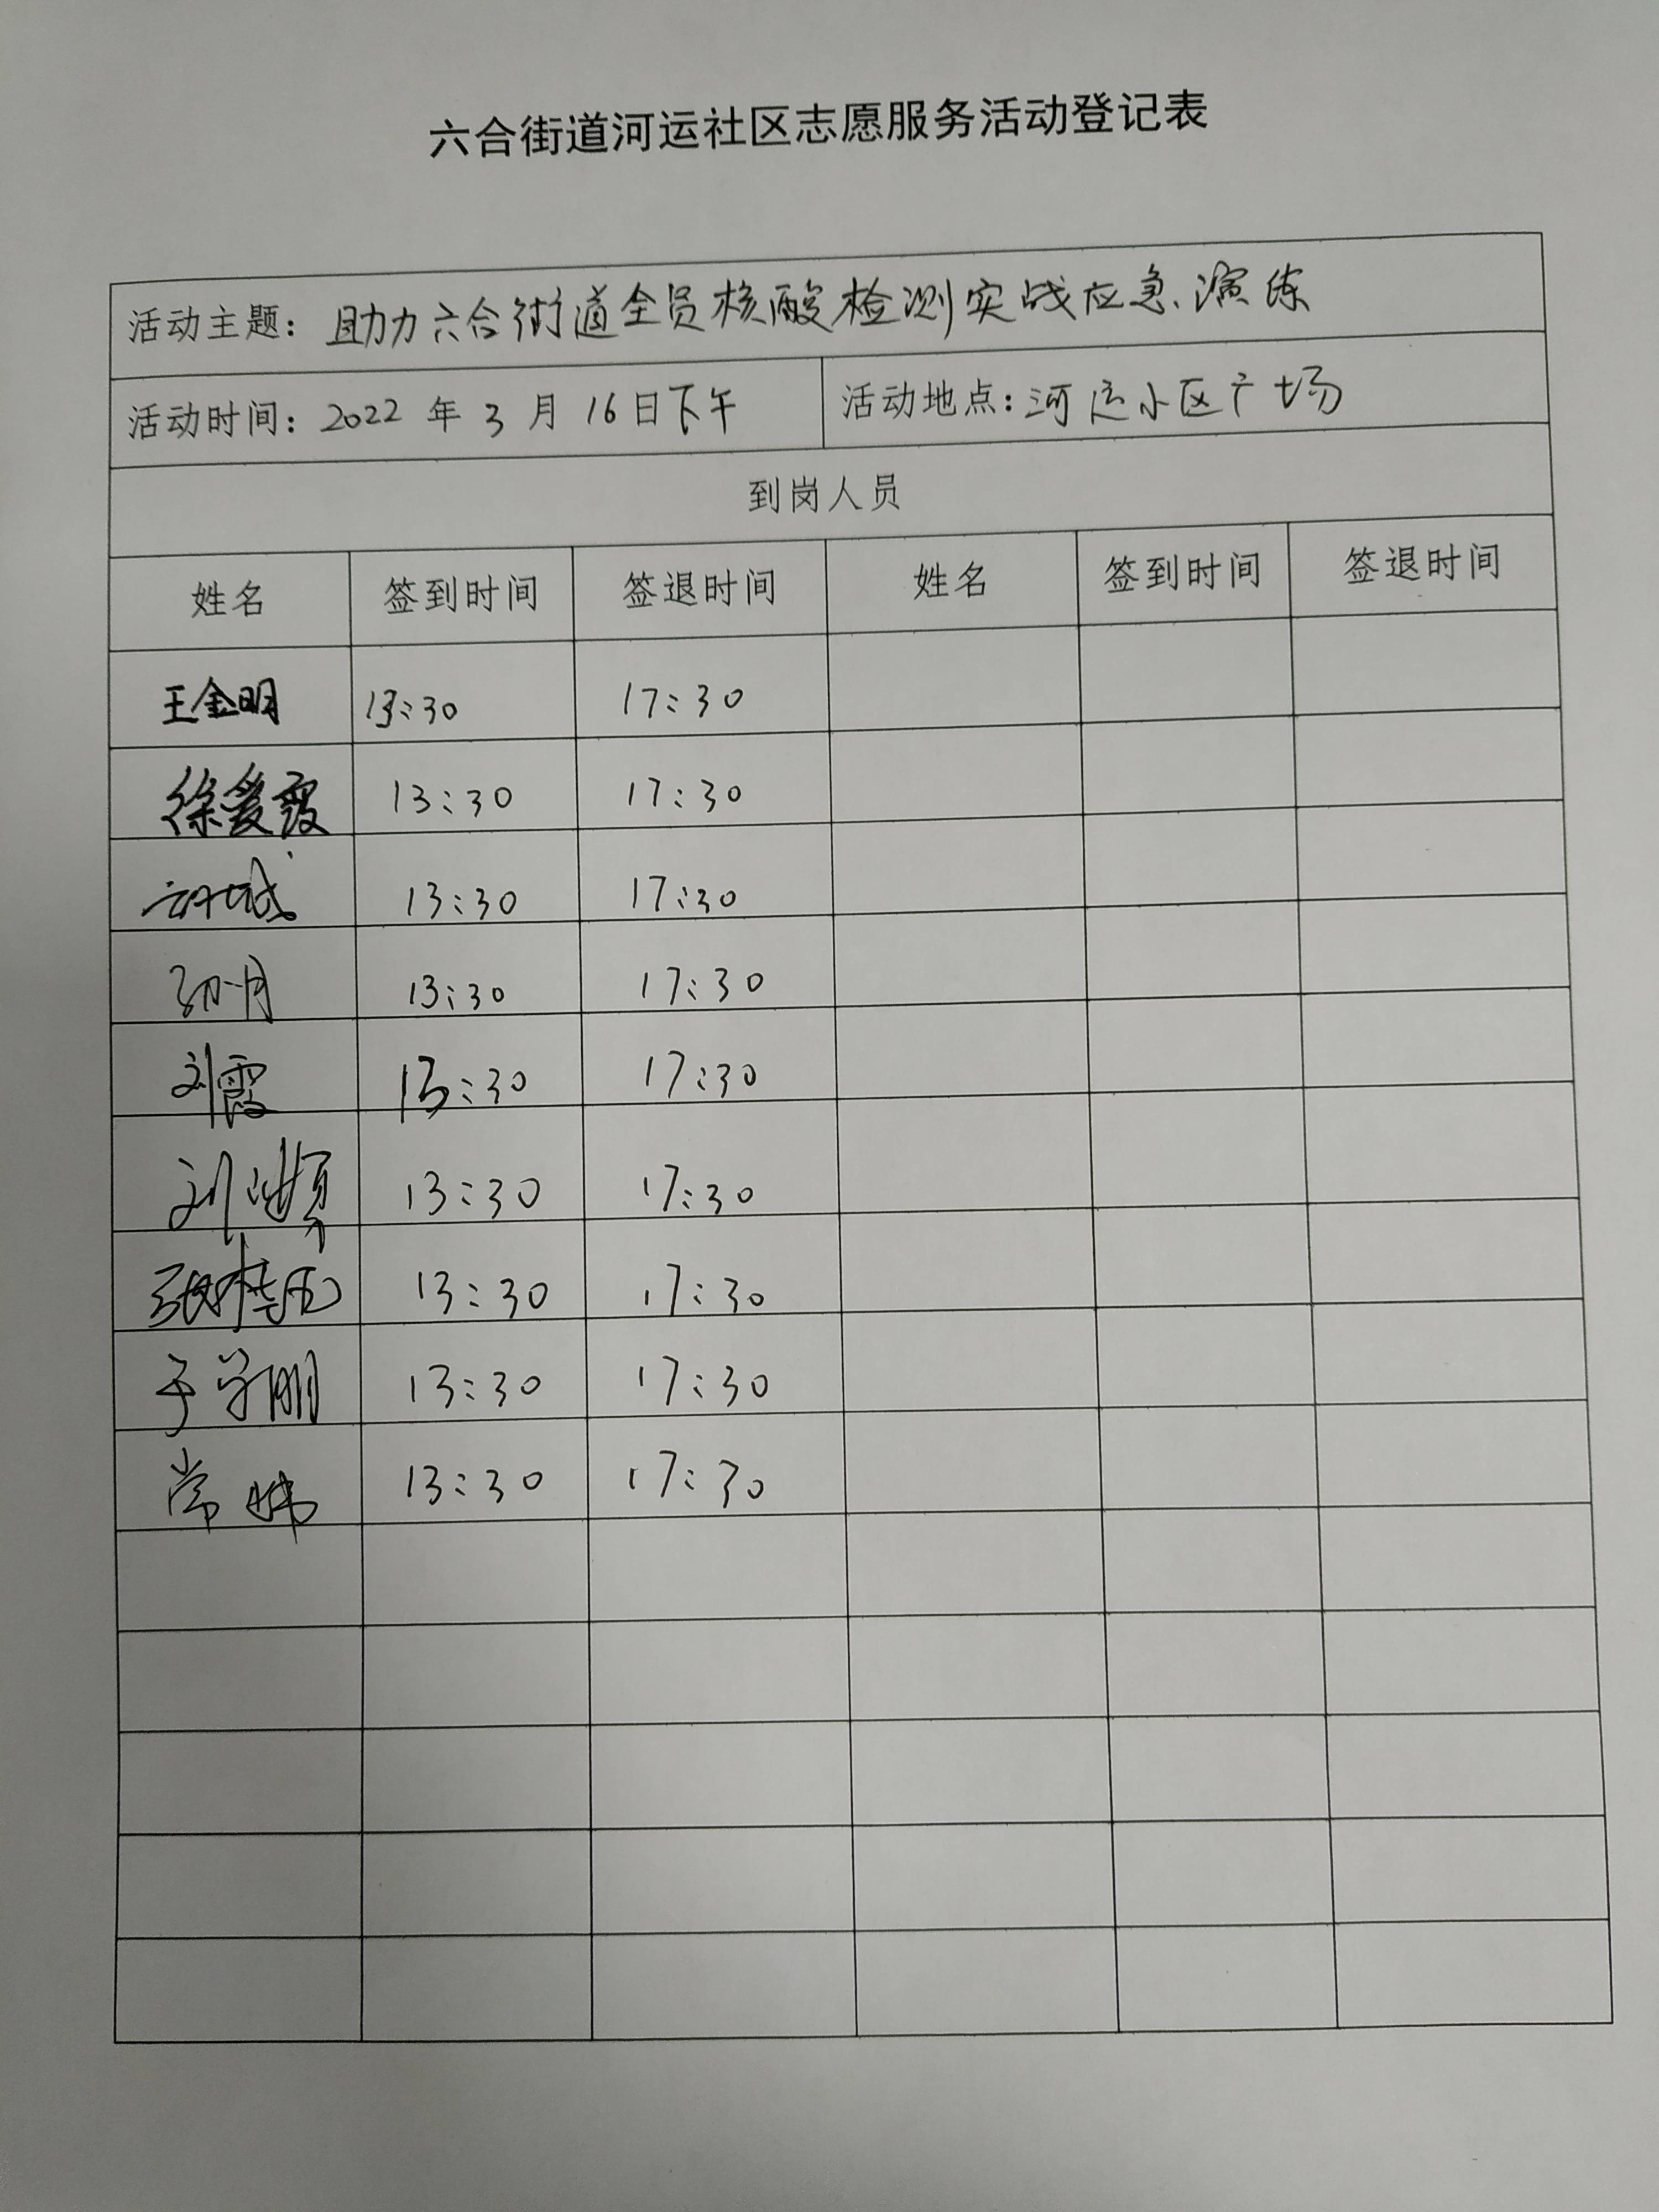 六合街道河运社区志愿服务活动登记表
活动主题：助力六合街道全员核酸检测实战应急演练
活动时间：2022 年 3 月 16日下午 活动地点：河运小区广场
到岗人员
姓名 签到时间 签退时间 姓名 签到时间 签退时间
王金明 13:30 17:30
徐爱霞 13:30 17:30
13:30 17:30
孙月 13:30 17:30
刘霞 13:30 17:30
刘 13:30 17:30
张桂凤 13:30 17:30
于学朋 13:30 17:30
常娜 13:30 17:30